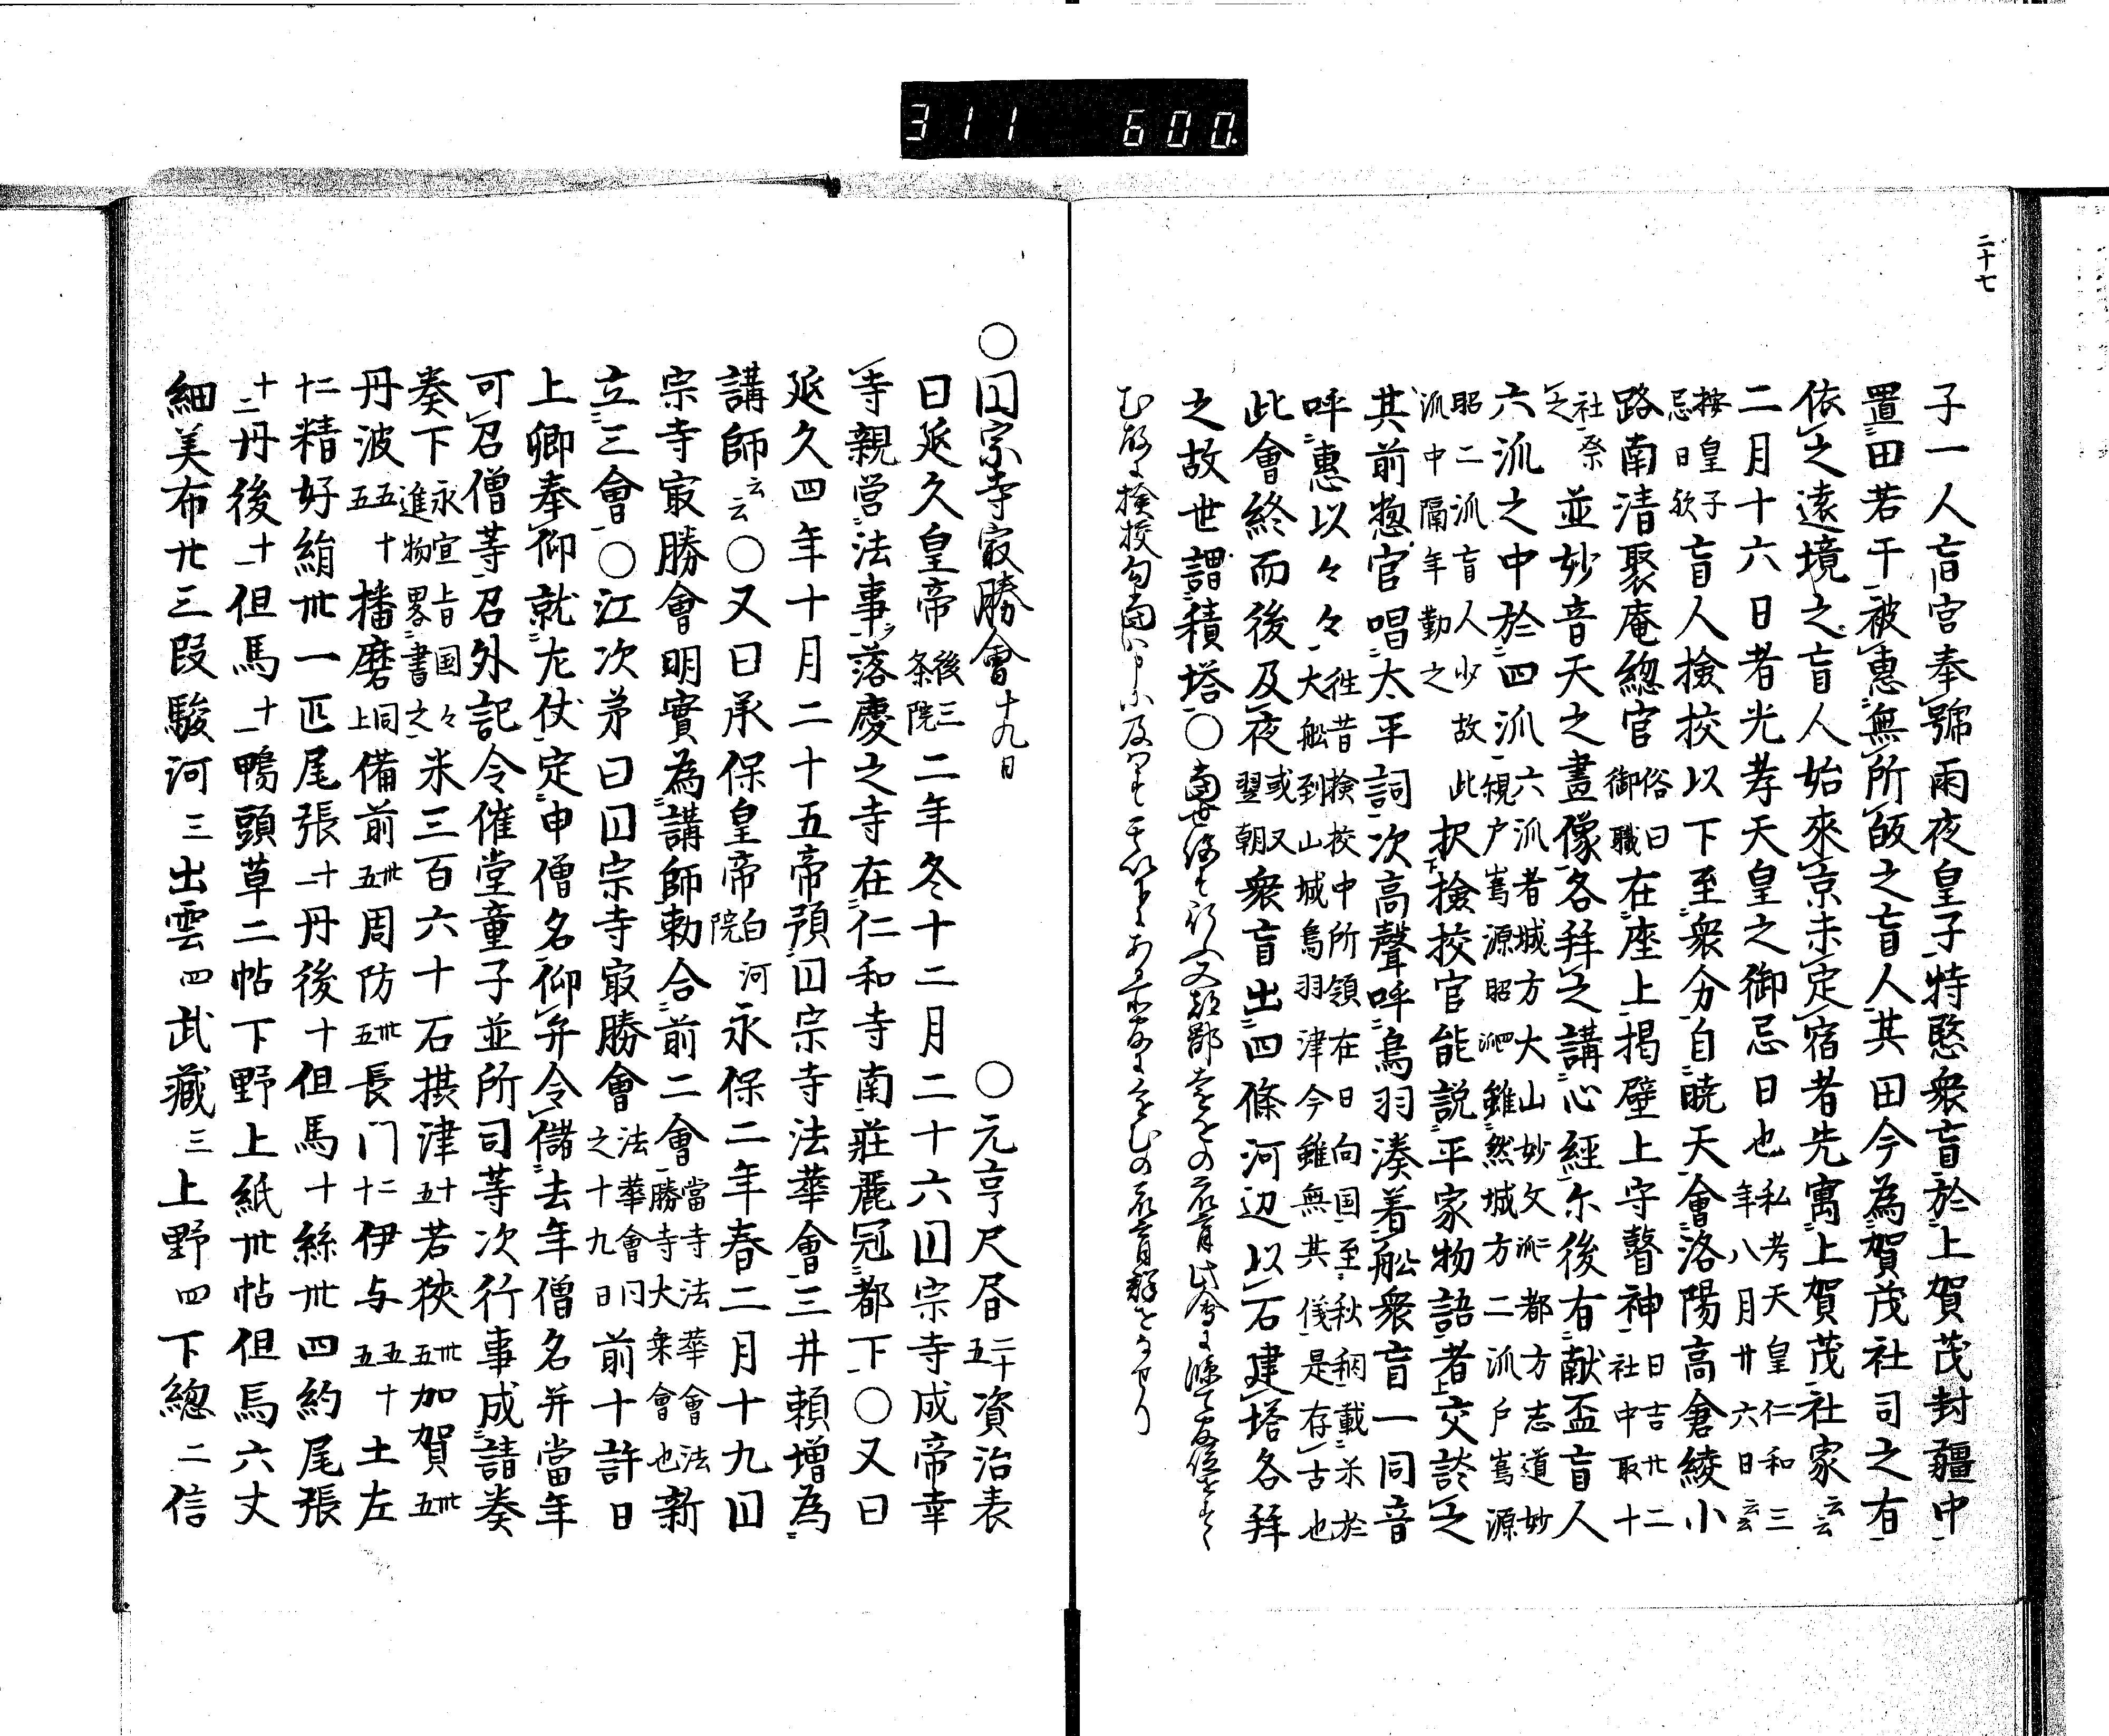 311 600.
二十七
子一人盲宮奉號雨夜皇子特愍衆盲於上賀茂封疆中
置田若干被惠無所皈之盲人其田今為賀茂社司之有
依之遠境之盲人始來京未定宿者先寓上賀茂社家云云
二月十六日者光孝天皇之御忌日也私考天皇仁和三年八月廿六日云云
按皇子忌日欤盲人撿挍以下至衆分自曉天會洛陽高倉綾小
路南清聚庵總官俗曰御職在座上掲壁上守瞽神日吉廿二社中取十
社祭之並妙音天之畫像各拜之講心經尓後有献盃盲人
六派之中於四派六派者城方大山妙文派都方志道妙規戸嶌源昭派雖然城方二派戸嶌源
昭二派盲人少故此派中隔年勤之択撿挍官能説平家物語者交談之
其前惣官唱太平詞次高聲呼烏羽湊着舩衆盲一同音
呼惠以々々々徃昔撿挍中所領在日向国至秋稠載米於大舩到山城鳥羽津今雖無其儀是存古也
此會終而後及夜或又翌朝衆盲出四條河辺以石建塔各拜
之故世謂積塔〇
〇囸宗寺㝡勝會十九日 〇元亨尺昏二十五資治表
曰延久皇帝後三条院二年冬十二月二十六囸宗寺成帝幸
寺親営法事落慶之寺在仁和寺南莊麗冠都下〇又曰
延久四年十月二十五帝預囸宗寺法華會三井頼増為
講師云云〇又曰承保皇帝白河院永保二年春二月十九囸
宗寺㝡勝會明實為講師勅合前二會當寺法華會法勝寺大乗會也新
立三會〇江次苐曰囸宗寺㝡勝會法華會同之十九日前十許日
上卿奉仰就左仗定申僧名仰弁令儲去年僧名并當年
可召僧等召外記令催堂童子並所司等次行事成請奏
奏下永宣旨国々進物畧書之米三百六十石摂津十五若狹丗五加賀丗五
丹波五十五播磨同上備前丗五周防丗五長门二十伊与五十五土左
二十精好絹丗一匹尾張十一丹後十但馬十絲丗四約尾張
十二丹後十一但馬十一鴨頭草二帖下野上紙丗帖但馬六丈
細美布廿三段駿河三出雲四武藏三上野四下總二信